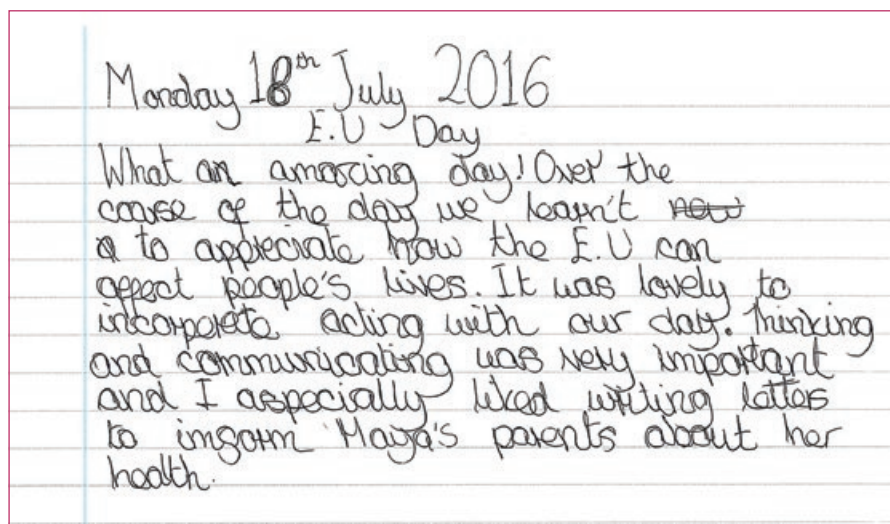 Monday 18th July 2016
E.U Day
What an amazing day! Over the
course of the day we learn't now
a to appreciate how the E.U can
affect people's lives. It was lovely to
incorporate acting with our day. Thinking
and communicating was very important
and I aspecially liked writing letters
to inform Maya's parents about her
health.